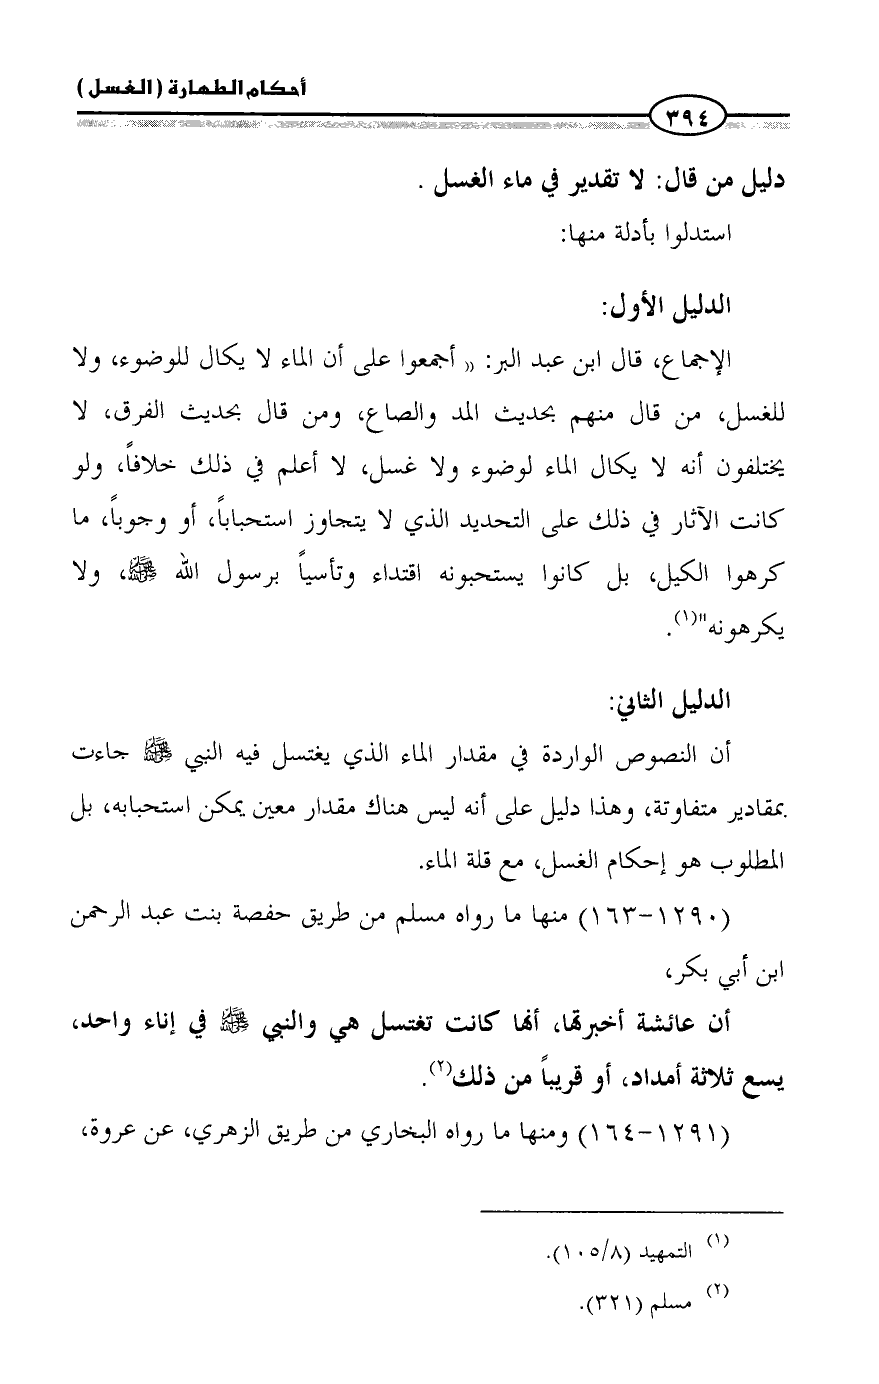 أحكام الطهارة (الغسل)
٣٩٤
دليل من قال: لا تقدير في ماء الغسل .
استدلوا بأدلة منها:
الدليل الأول:
الإجماع، قال ابن عبد البر: « أجمعوا على أن الماء لا يكال للوضوء، ولا
للغسل، من قال منهم بحديث المد والصاع، ومن قال بحديث الفرق، لا
يختلفون أنه لا يكال الماء لوضوء ولا غسل، لا أعلم في ذلك خلافاً، ولو
كانت الآثار في ذلك على التحديد الذي لا يتجاوز استحباباً، أو وجوباً، ما
كرهوا الكيل، بل كانوا يستحبونه اقتداء وتأسياً برسول الله ﷺ، ولا
يكرهونه"(١).
الدليل الثاني:
أن النصوص الواردة في مقدار الماء الذي يغتسل فيه النبي ﷺ جاءت
بمقادير متفاوتة، وهذا دليل على أنه ليس هناك مقدار معين يمكن استحبابه، بل
المطلوب هو إحكام الغسل، مع قلة الماء.
(١٢٩٠-١٦٣) منها ما رواه مسلم من طريق حفصة بنت عبد الرحمن
ابن أبي بكر،
أن عائشة أخبرتها، أنها كانت تغتسل هي والنبي ﷺ في إناء واحد،
يسع ثلاثة أمداد، أو قريباً من ذلك(٢).
(١٢٩١-١٦٤) ومنها ما رواه البخاري من طريق الزهري، عن عروة،
(١) التمهيد (١٠٥/٨).
(٢) مسلم (٣٢١).